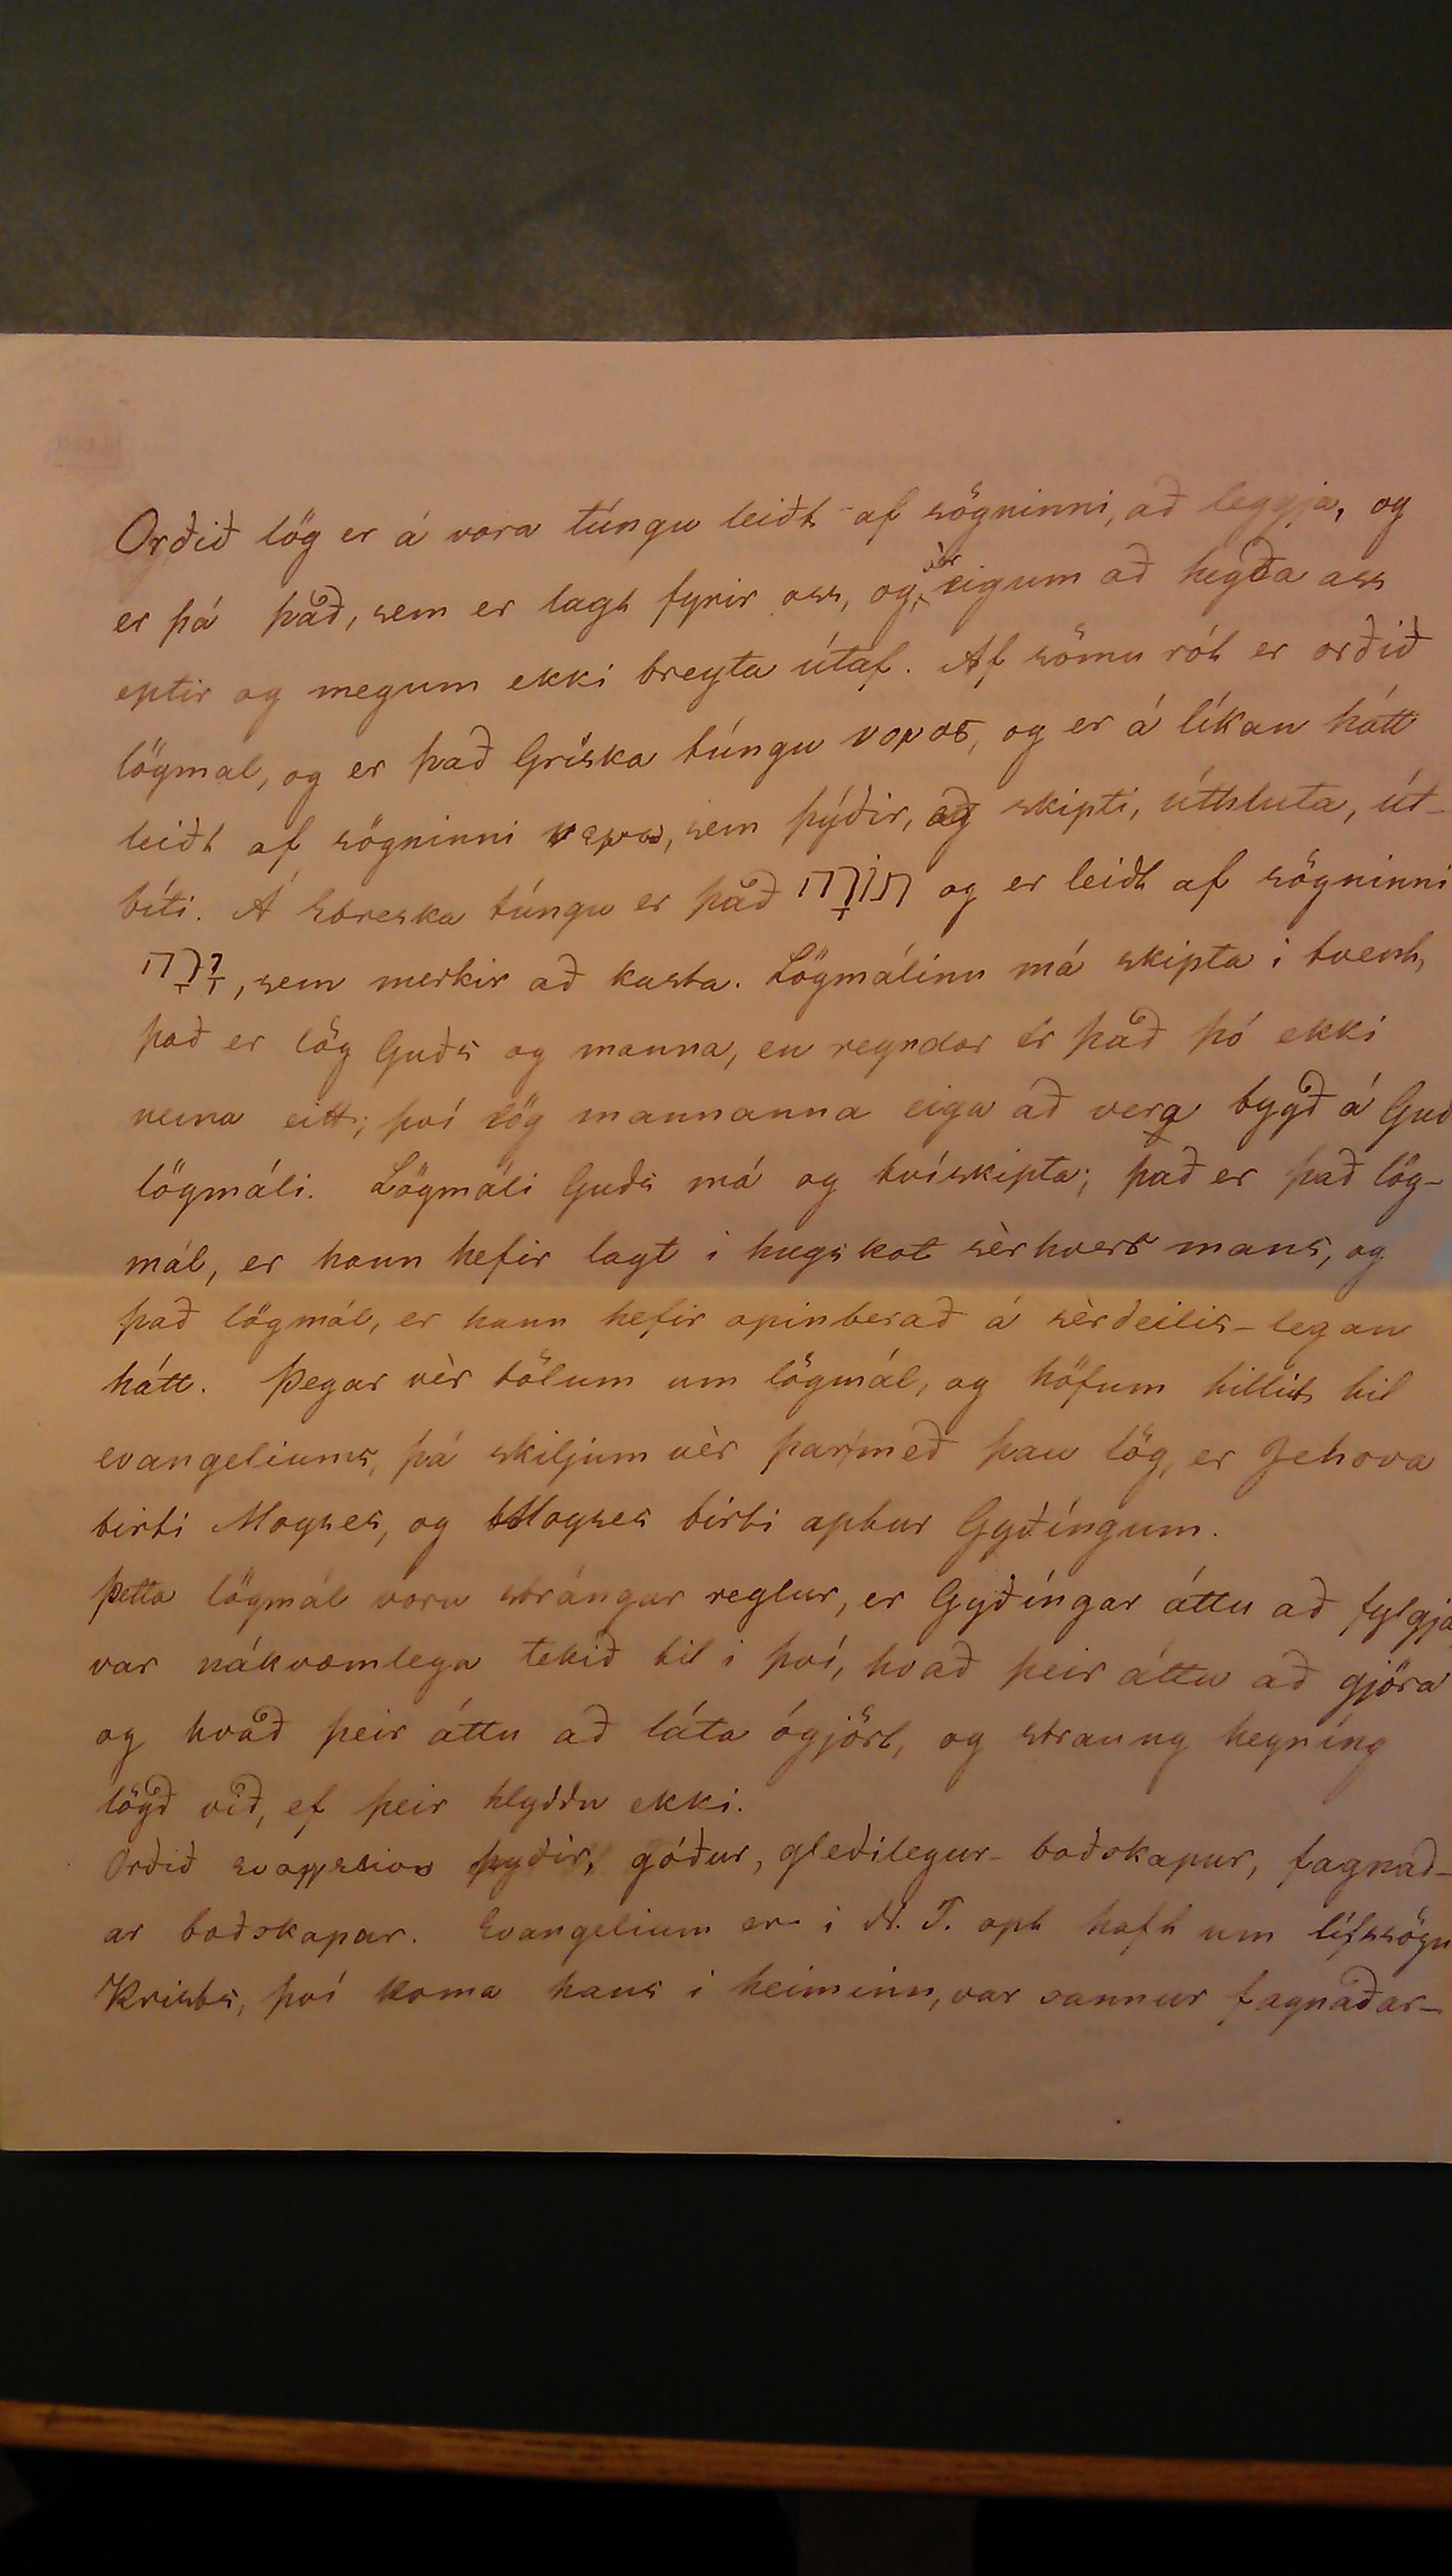 Orðið lög er á vora túngu leiðt af sögninni, að leggja, og
er þá það, sem er lagt fyrir oss, og vèr eigum að hegða oss
eptir og megum ekki breyta útaf. Af sömu rót er orðið
lögmal, og er það Gríska túngu νομος, og er á líkan hátt
leiðt af sögninni νεμω, sem þýðir, eg skipti, úthluta, út-
bíti. Á Ebreska túngu er það תּוֹרָה og er leiðt af sögninni
יָרָה, sem merkir að kasta. Lögmálinu má skipta i tvent,
það er lög Guðs og manna, en reyndar er það þó ekki
nema eitt; því lög mannanna eiga að vera bygð á Guð
lögmáli. Lögmáli Guðs má og tvískipta; það er það lög-
mál, er hann hefir lagt i hugskot sèrhvers mans, og
það lögmál, er hann hefir opinberað á sèrdeilis-legan
hátt. Þegar vèr tölum um lögmál, og höfum tillit til
evangeliums, þá skiljum vèr þarmeð þau lög, er Jehova
birti Moyses, og Moyses birti aptur Gyðíngum.
Þetta lögmál voru strángar reglur, er Gyðíngar áttu að fylgja
var nákvæmlega tekið til i því, hvað þeir áttu að gjöra
og hvað þeir áttu að láta ógjört, og straung hegníng
lögð við, ef þeir hlyddu ekki.
Orðið ευαγγελιον þyðir, góður, gleðilegur boðskapur, fagnað-
ar boðskapar. Evangelium er i N. T. opt haft um lífssögu
Krists, því koma hans i heiminn, var sannur fagnaðar-